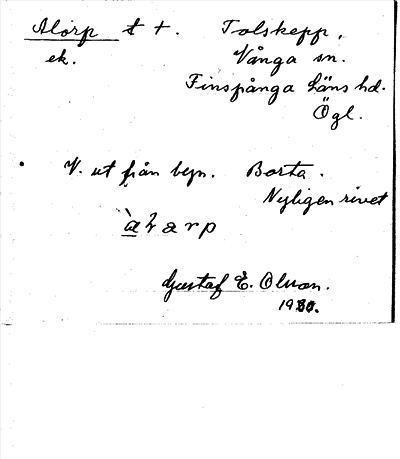 Alorp t +. Tolskepp,
ek. Vånga sn.
Finspånga läns hd.
Ögl.
V. ut från byn. Borta.
Nyligen rivet
Gustaf E. Olsson.